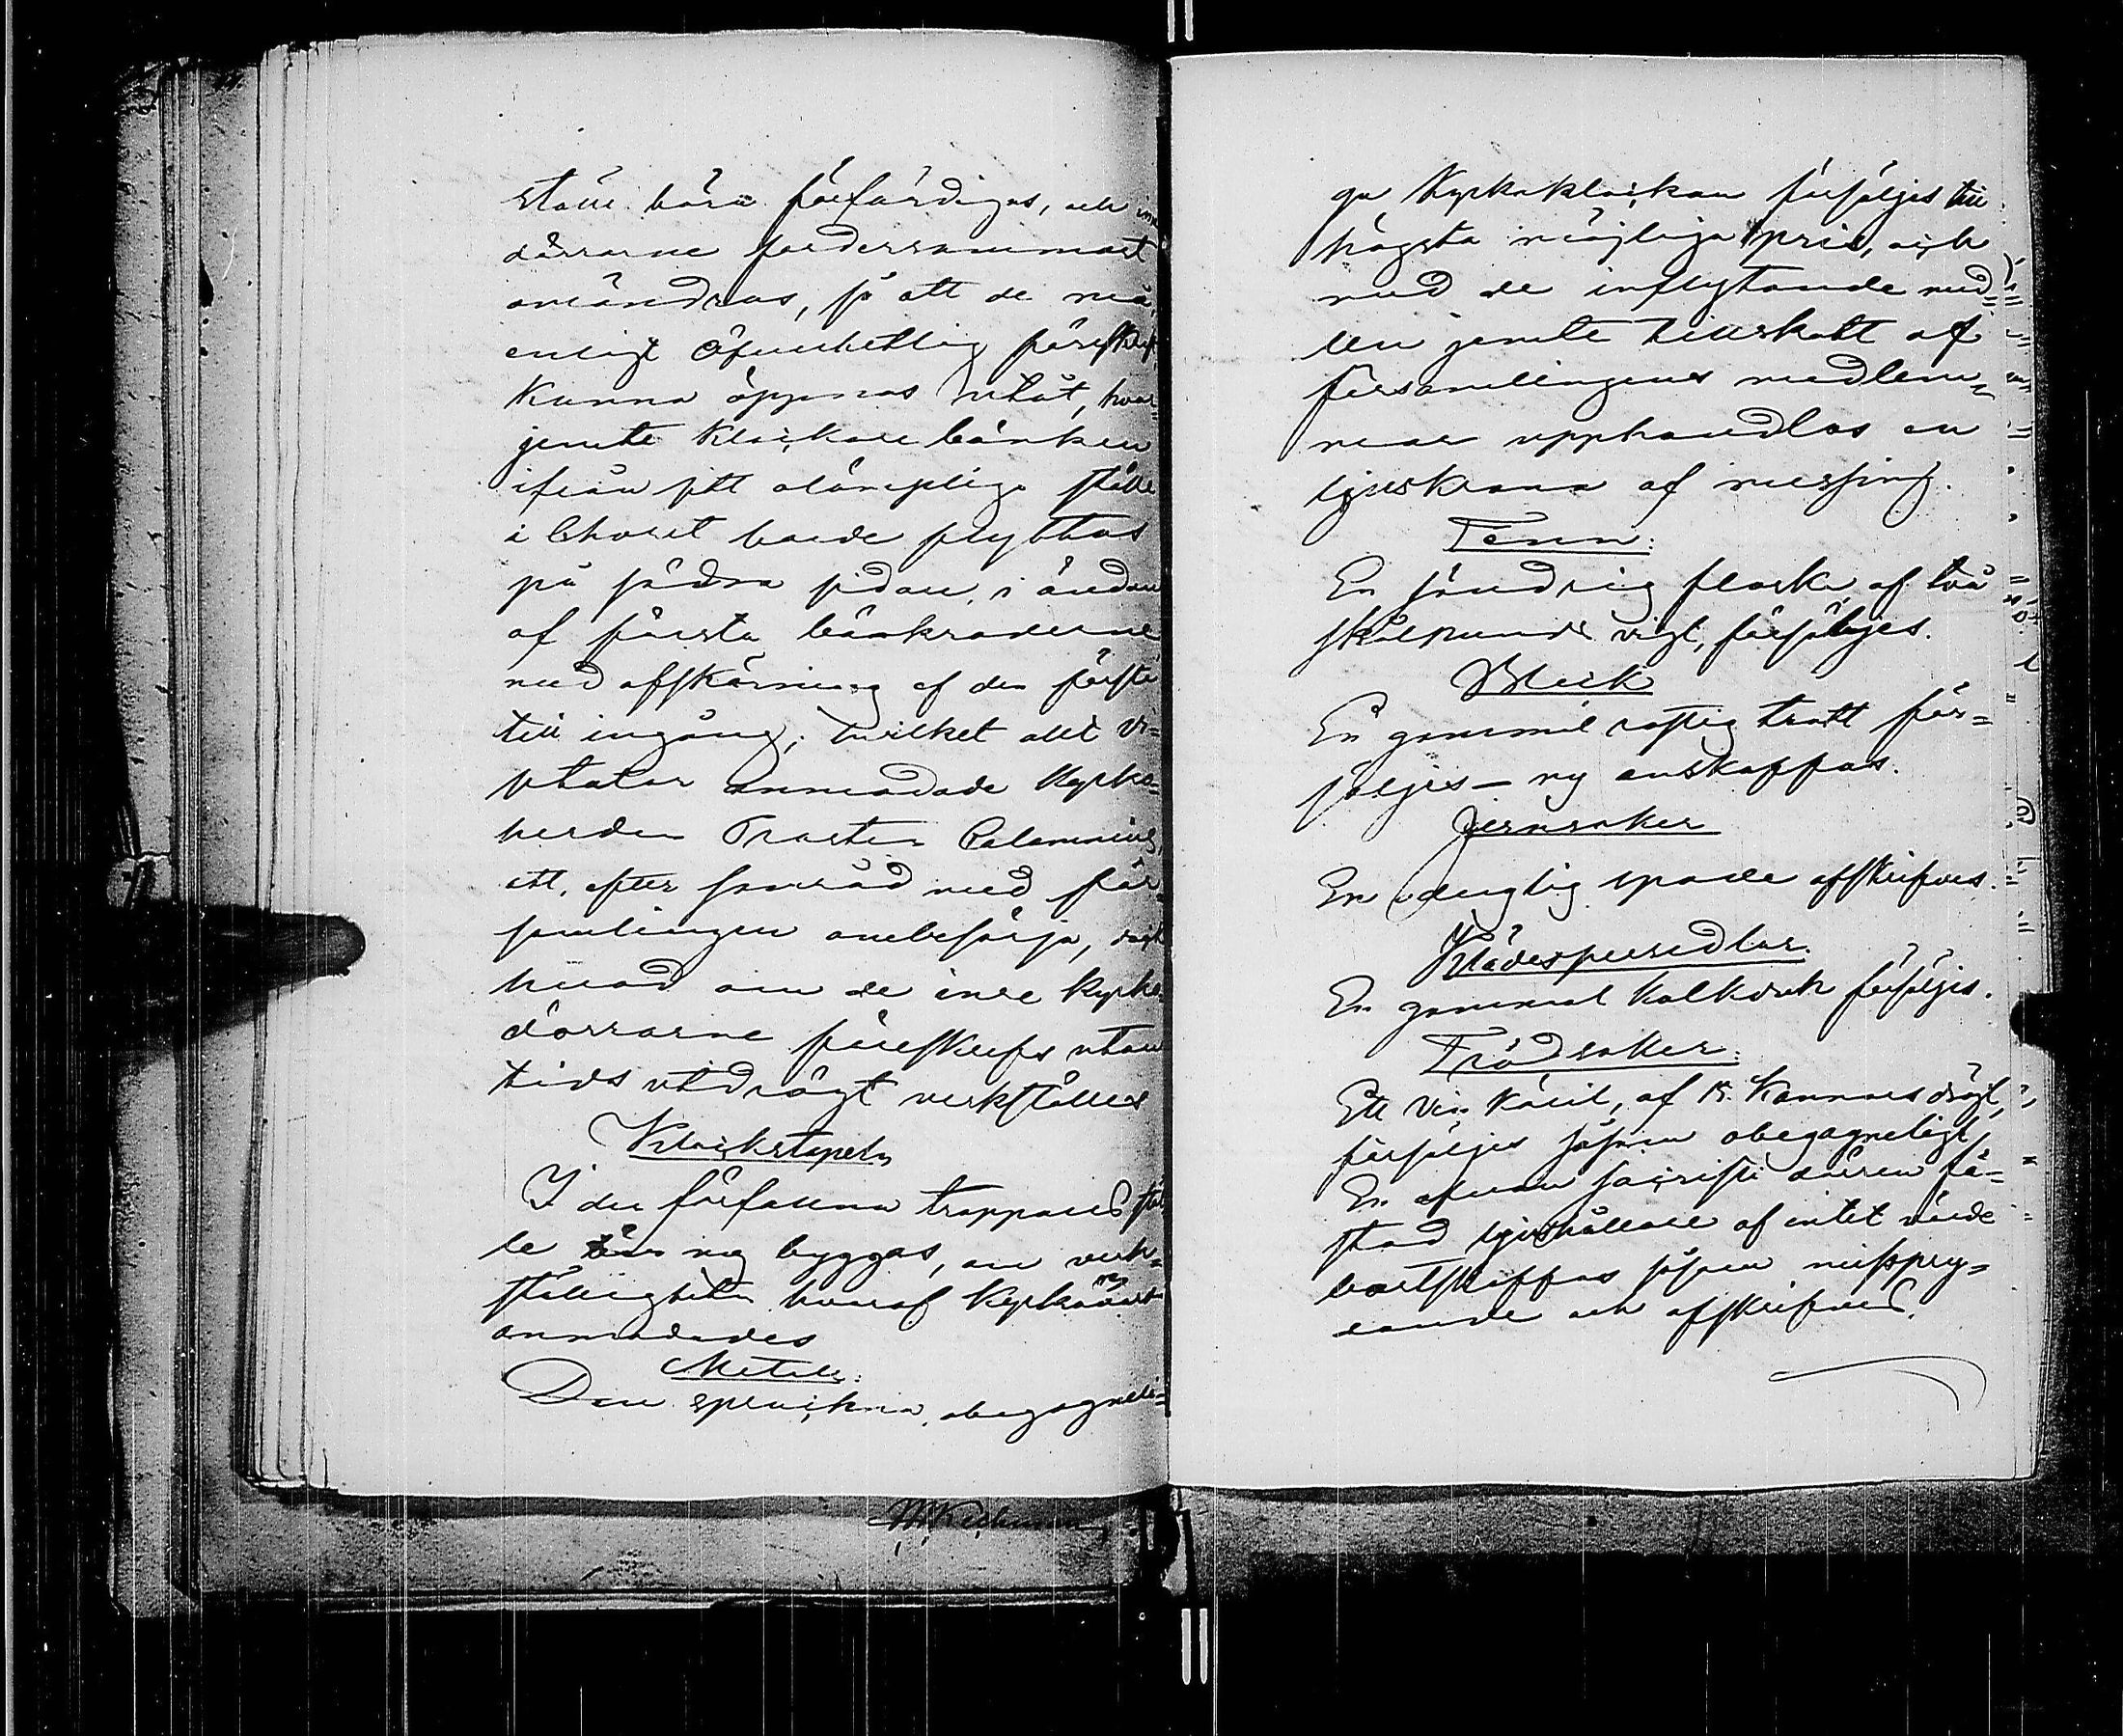 ställe böra förfärdigas, och in
dörrarne fordersammast
omändras, så att de må,
enligt Öfverhetlig föreskrift
kunna öppnas utåt, hvar-
jemte Klockare bänken
ifrån sitt olämpliga ställe
i Choret borde flyttas
på södra sidan, i ändan
af första bänkraderne
med afskärning af den första
till ingång; hvilket allt Vi-
sitator anmodade Kyrko-
herden Prosten Calamnius,
att, efter samråd med för-
samlingen ombesörja, dock
hvad om de inre kyrko-
dörrarne föreskrefs utan
tids utdrägt verkställes
Klockstapeln
I den förfallna trappans stäl-
le bör ny byggas, om verk-
ställigheten hvaraf Kyrkovärden
anmodades
Metall:
Den spruckna, obegagneli-
ga Kyrkoklockan försäljes till
högsta möjliga pris, och
med de inflytande med-
len jemte tillskott af
församlingens medlem-
mar upphandlas en
ljuskrona af messing.
Tenn:
En söndrig flaska, af två
skålpunds vigt, försäljes.
Bleck
En gammal rostig tratt för-
säljes – ny anskaffas.
Jernsaker
En oduglig spade afskrifves.
Klädespersedlar
En gammal kalkduk försäljes.
Trädsaker:
Ett Vin käril, af 15 Kannors drägt,
försäljes såsom obegagneligt
En ofvan sacristi dörren fä-
stad ljushållare af intet värde
bortskaffas såsom misspry-
dande och afskrifves.